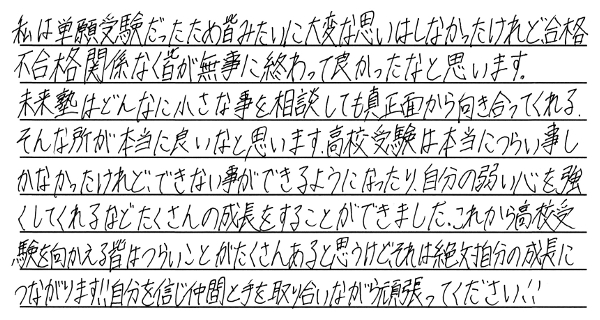 私は単願受験だったため皆みたいに大変な思いはしなかったけれど、合格
不合格関係なく皆が無事に終わって良かったなと思います。
未来塾はどんなに小さな事を相談しても真正面から向き合ってくれる、
そんな所が本当に良いなと思います。高校受験は本当につらい事し
かなかったけれど、できない事ができるようになったり、自分の弱い心を強
くしてくれるなどたくさんの成長をすることができました。これから高校受
験を向かえる皆はつらいことがたくさんあると思うけど、それは絶対自分の成長に
つながります!!自分を信じ仲間と手を取り合いながら頑張ってください!!